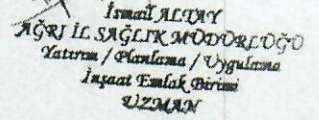 İsmail ALTAY
AĞRI İL SAĞLIK MÜDÜRLÜĞÜ
Yatırım / Planlama / Uygulama
İnşaat Emlak Birimi
UZMAN